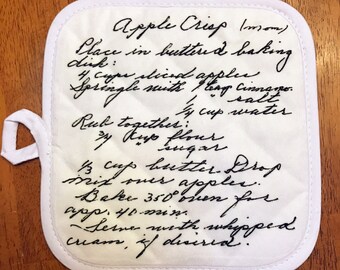 Apple Crisp (mom)
Place in buttered baking
dish:
4 cups sliced apples
Springle with 1 teasp cinnamon
1 " salt
1/4 cup water
Rub together:
3/4 cup flour
" sugar
1/3 cup butter. Drop
mix over apples.
Bake 350° oven for
app. 40 min.
- Serve with whipped
cream, if desired.